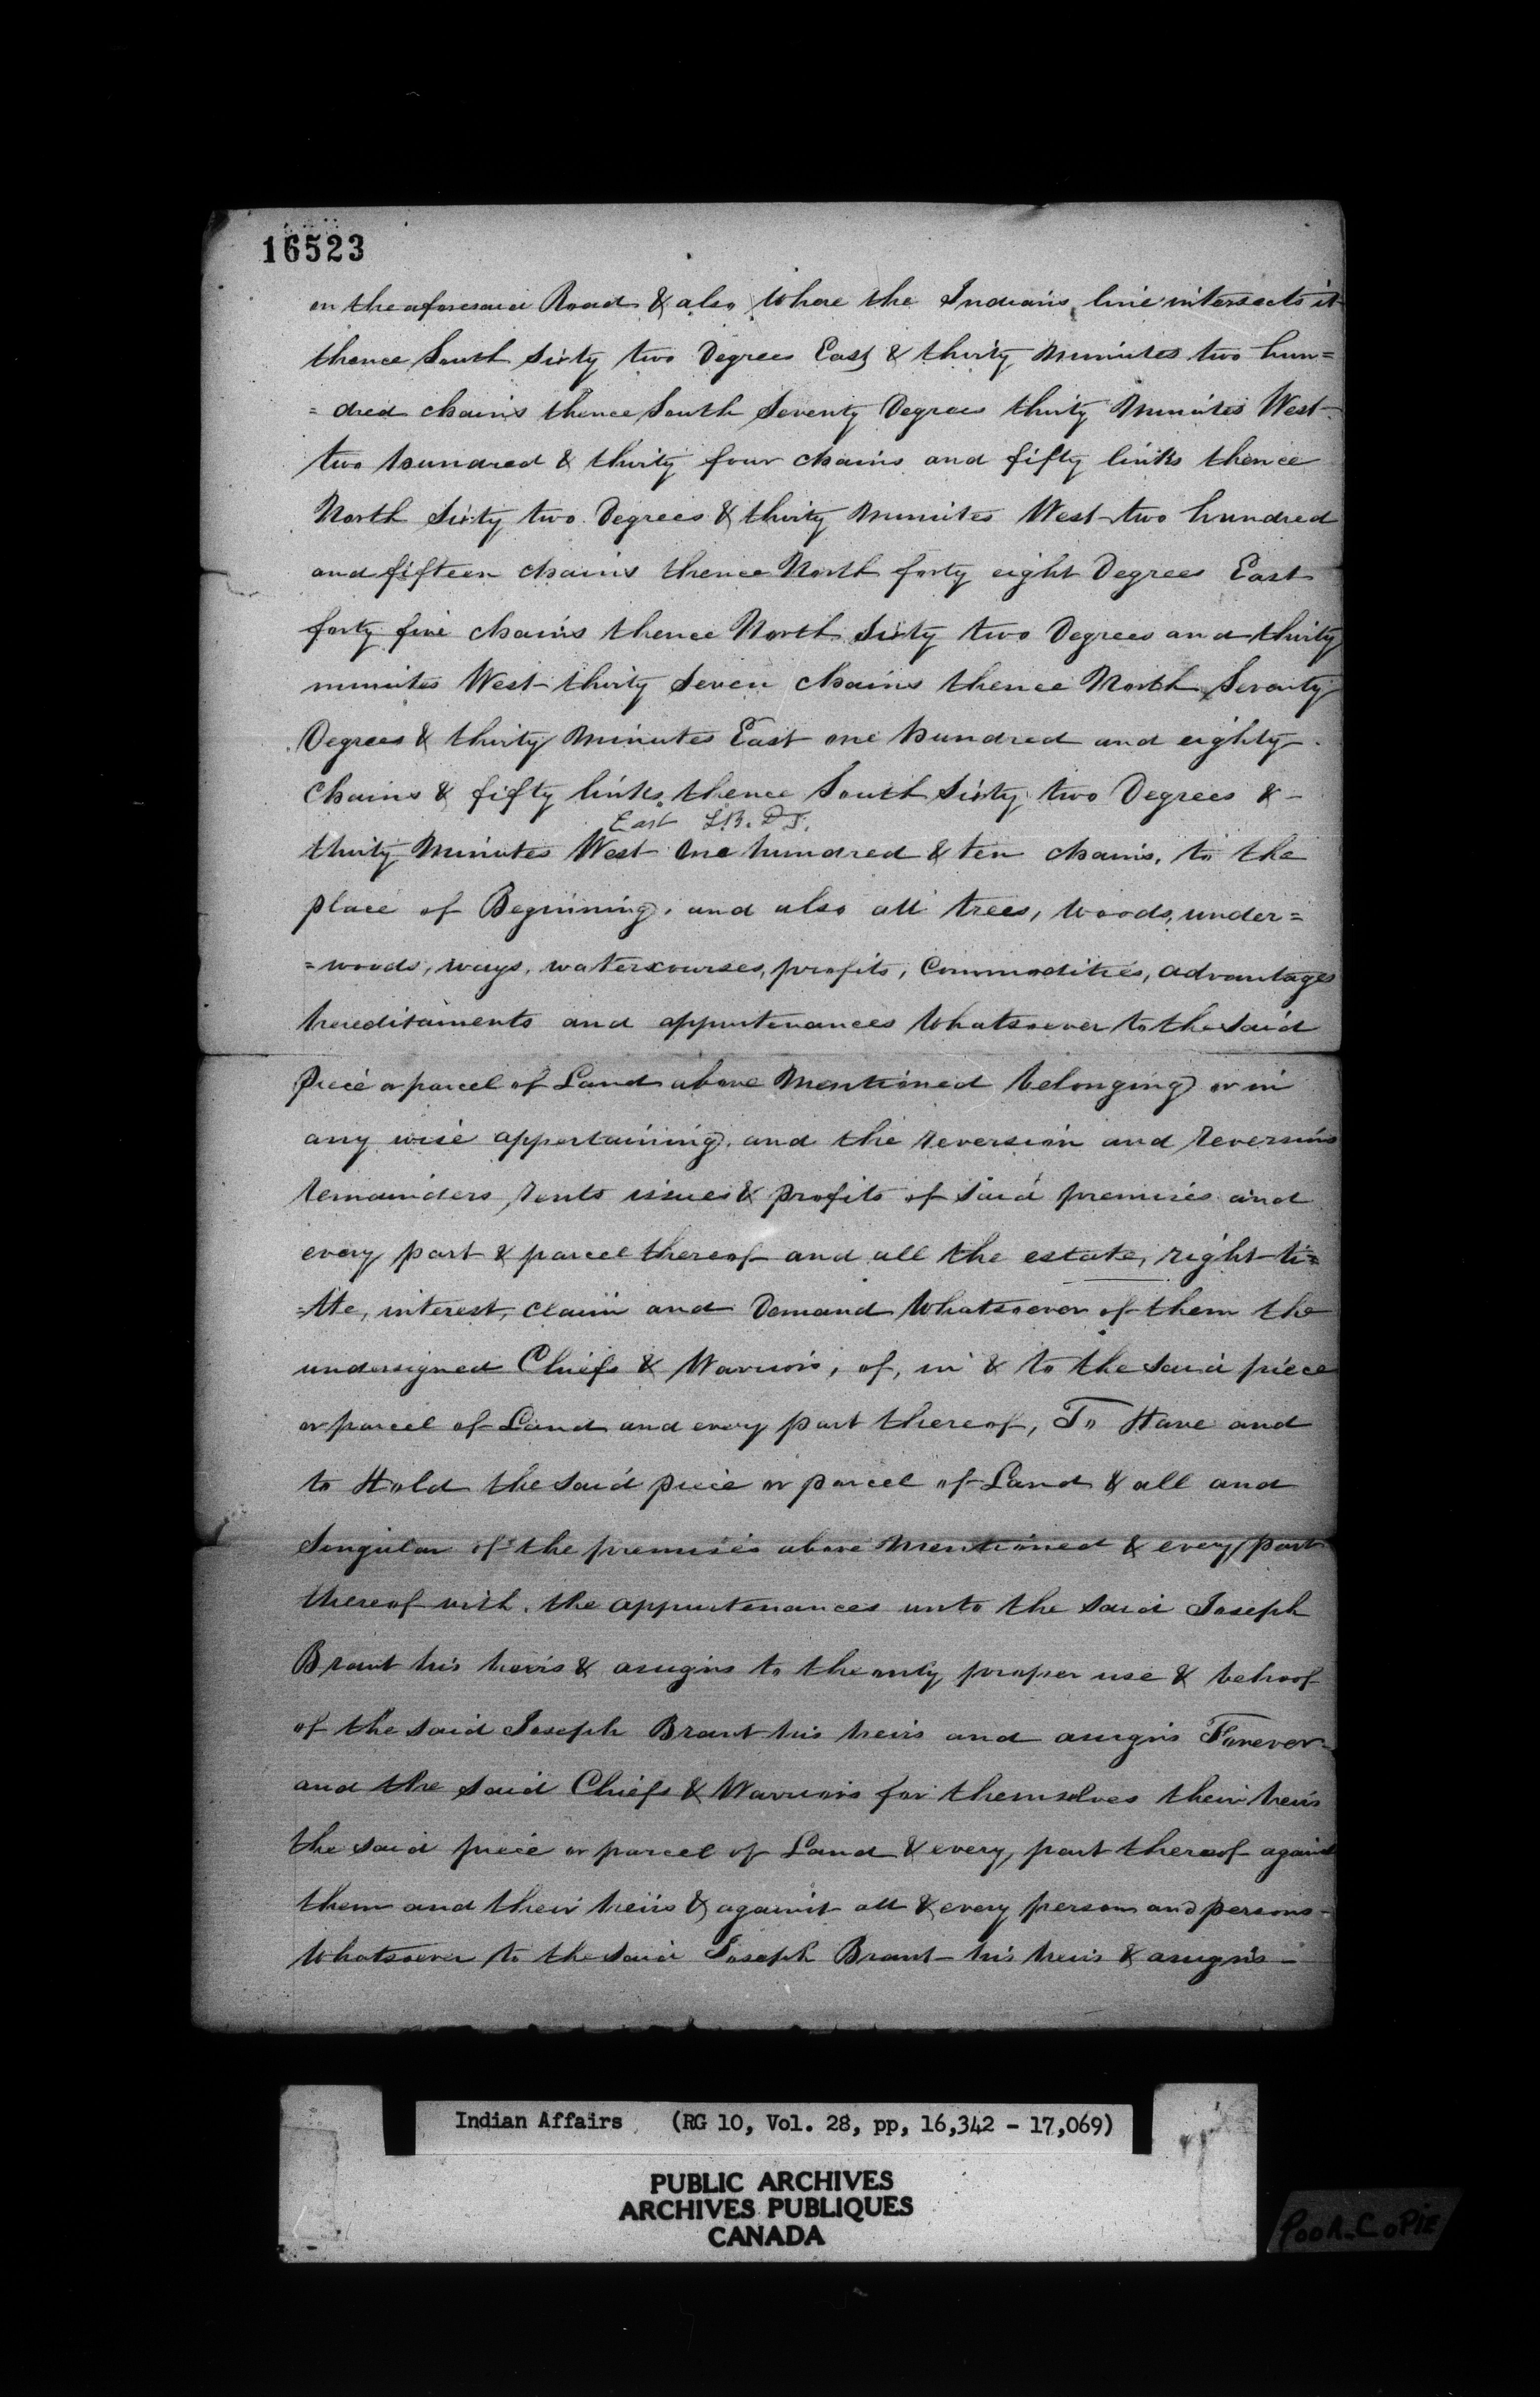 16523
on the aforesaid Road & also where the Indians line intersects it
thence South Sixty two Degrees East & thirty Minutes two hun=
= dred chains thence South Seventy Degrees thirty Minutes West
two hundred & thirty four chains and fifty links thence
North Sixty two Degrees & thirty Minutes West two hundred
and fifteen chains thence North forty eight Degrees East
forty five chains thence North Sixty two Degrees and thirty
minutes West thirty Seven chains thence North Seventy
Degrees & thirty Minutes East one hundred and eighty
Chains & fifty links thence South Sixty two Degrees &
East
thirty Minutes West One hundred & ten chains, to the
place of Beginning, and also all trees, woods, under=
=woods, ways, watercourses, profits, Commodities, advantages
hereditaments and appurtenances Whatsoever to the said
Piece or parcel of Land above Mentioned belonging or in
any wise appertaining, and the reversion and reversions
remainders, rents issues & profits of said premises and
every part & parcel thereof and all the estate, right ti=
=tle, interest, claim and Demand Whatsoever of them the
undersigned Chiefs & Warriors, of, in & to the said piece
or parcel of Land and every part thereof, To Have and
to Hold the said piece or parcel of Land & all and
Singular of the premises above Mentioned & every part
thereof with the appurtenances unto the said Joseph
Brant his heirs & assigns to the only proper use & behoof
of the said Joseph Brant his heirs and assigns Forever
and the said Chiefs & Warriors for themselves their heirs
the said piece or parcel of Land & every part thereof against
them and their heirs & against all & every person and persons
Whatsoever to the said Joseph Brant his heirs & assigns
Indian Affairs (RG 10, Vol. 28, pp, 16,342 - 17,069)
PUBLIC ARCHIVES
ARCHIVES PUBLIQUES
CANADA
POOR COPIE